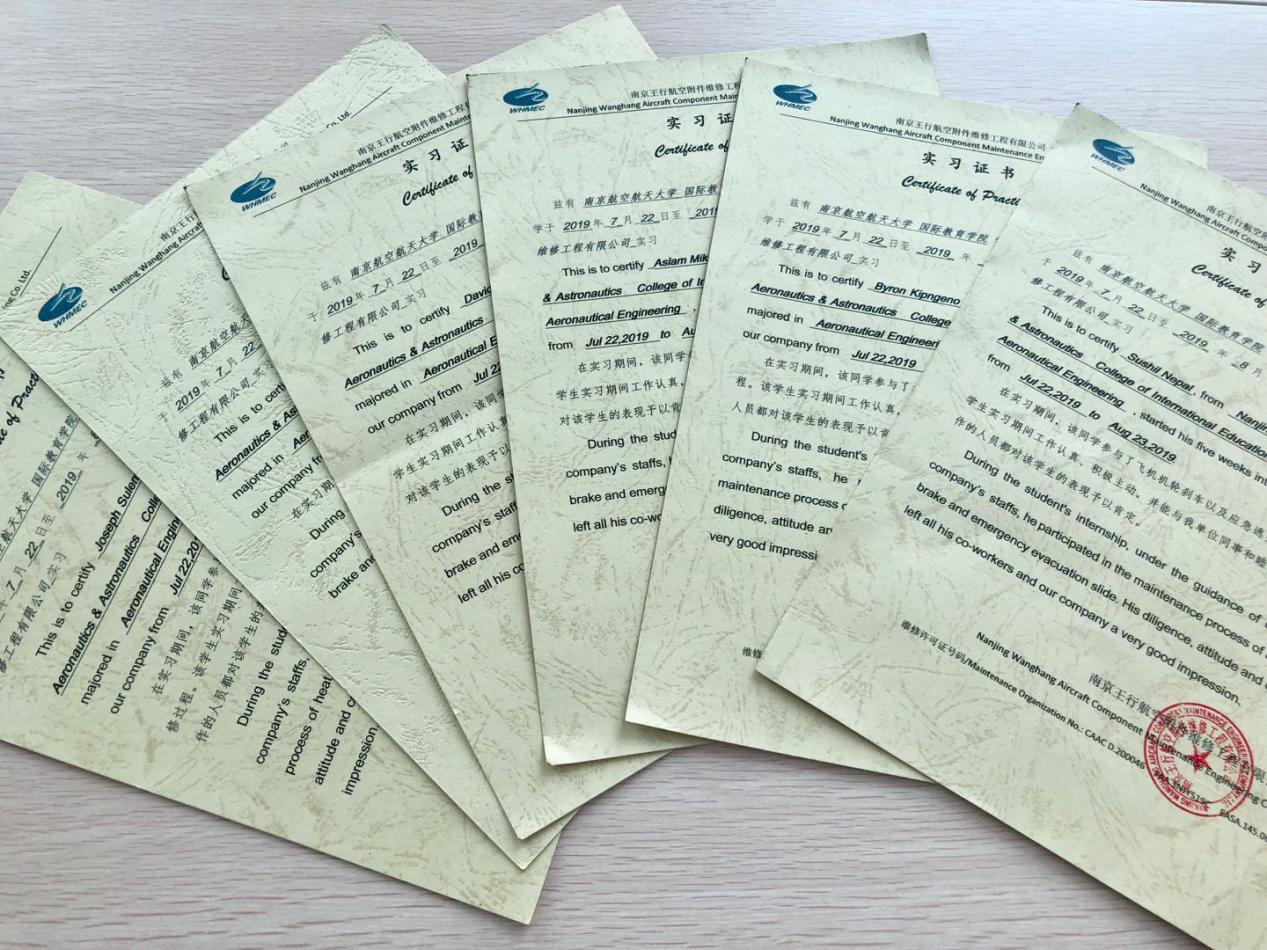 ng Co. Ltd.
e of Pract
南京航空航天大学 国际教育学院
年 7 月 22 日至 2019 年
修工程有限公司 实习
This is to certify Joseph Sulem
Aeronautics & Astronautics Colle
majored in Aeronautical Engin
our company from Jul 22,20
在实习期间，该同学参
修过程。该学生实习期间
作的人员都对该学生的
During the stud
company's staffs,
process of heat
attitude and c
impression
Co., Ltd.
WHMEC
南京王行航
Nanjing Wanghang Aircraf
C
兹有 南京航空航天
于 2019 年 7 月 22
修工程有限公司 实习
This is to cert
Aeronautics & Ast
majored in Aer
our company fr
在实习期
During
company's
brake and
WHMEC
南京王行航空附件维修工程
Nanjing Wanghang Aircraft Component Mainte
实 习 证
Certificate of
兹有 南京航空航天大学 国际教
于 2019 年 7 月 22 日至 2019
修工程有限公司 实习
This is to certify David
Aeronautics & Astronautics
majored in Aeronautical E
our company from Jul 22
在实习期间，该同学
学生实习期间工作认真
对该学生的表现予以肯
During the s
company's staff
brake and eme
left all his co
WHMEC
南京王行航空附件维修工程
Nanjing Wanghang Aircraft Component Mai
实 习 证
Certificate of
兹有 南京航空航天大学 国际教
学于 2019 年 7 月 22 日至 2019
维修工程有限公司 实习
This is to certify Aslam Mik
& Astronautics College of In
Aeronautical Engineering ,
from Jul 22,2019 to Au
在实习期间，该同学
学生实习期间工作认真，
对该学生的表现予以肯
During the stud
company's staffs, h
brake and emerg
left all his co-wo
WHMEC
南京王行航空附件维修工程有限公司
Nanjing Wanghang Aircraft Component Maintenance En
实 习 证 书
Certificate of Practi
兹有 南京航空航天大学 国际教育学院
学于 2019 年 7 月 22 日至 2019 年
维修工程有限公司 实习
This is to certify Byron Kipngeno
Aeronautics & Astronautics College
majored in Aeronautical Engineer
our company from Jul 22,2019
在实习期间，该同学参与了
程。该学生实习期间工作认真，
人员都对该学生的表现予以肯
During the student's
company's staffs, he
maintenance process o
diligence, attitude an
very good impressi
维修
WHMEC
南京王行航空附
Nanjing Wanghang Aircraft Compo
实 习
Certificate of
兹有 南京航空航天大学 国际教育学院
于 2019 年 7 月 22 日至 2019 年 8 月
修工程有限公司 实习
This is to certify Sushil Nepal, from Nanjin
& Astronautics College of International Education
Aeronautical Engineering , started his five weeks int
from Jul 22,2019 to Aug 23,2019
在实习期间，该同学参与了飞机机轮刹车以及应急逃
学生实习期间工作认真、积极主动，并能与我单位同事和睦
作的人员都对该学生的表现予以肯定。
During the student's internship, under the guidance of
company's staffs, he participated in the maintenance process of
brake and emergency evacuation slide. His diligence, attitude and
left all his co-workers and our company a very good impression.
南京王行航空附件维修工程有限
Nanjing Wanghang Aircraft Component Maintenance Engineering C
维修许可证号码/Maintenance Organization No.: CAAC D.200046
EASA.145.0